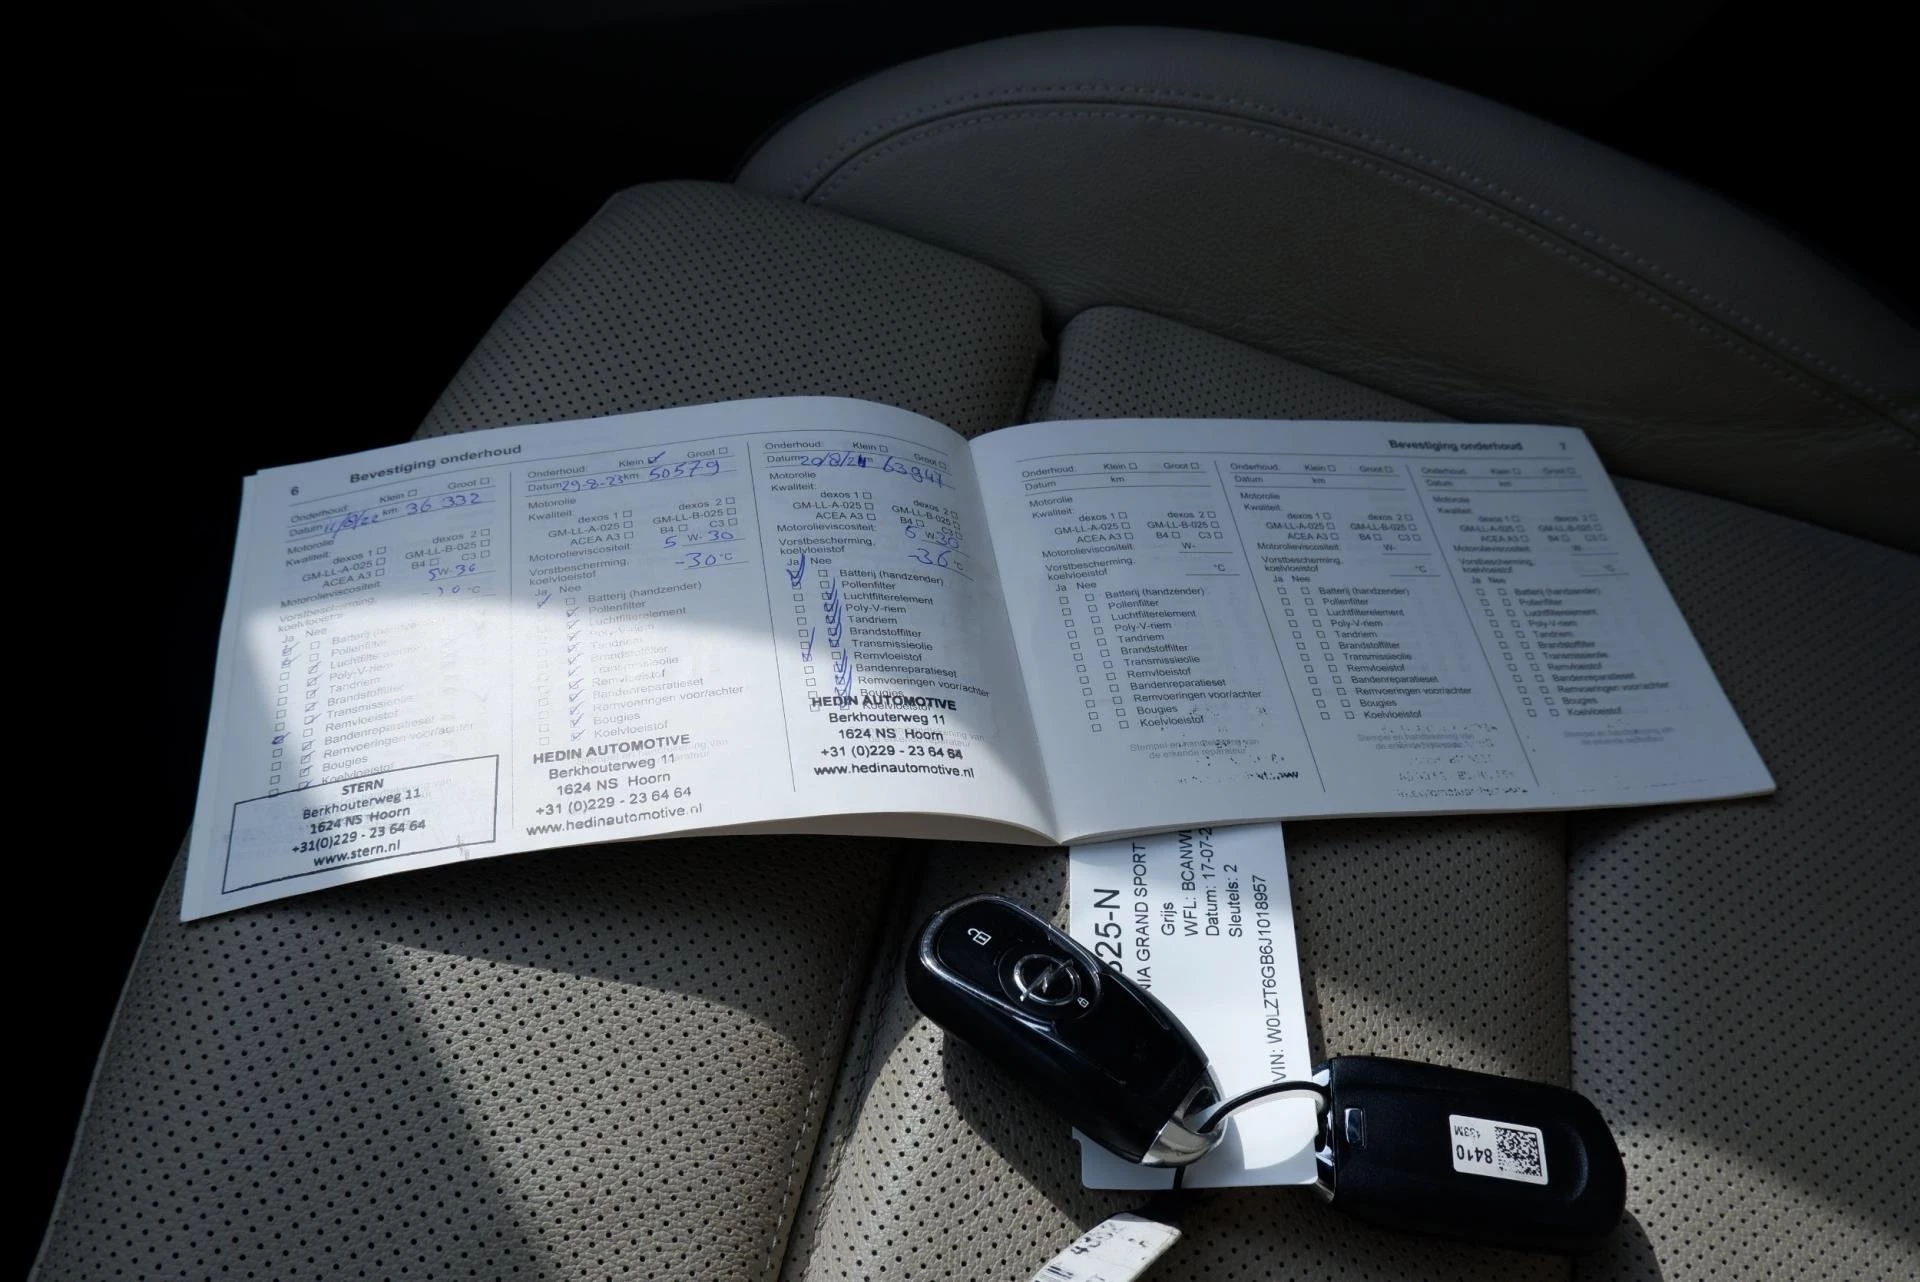 6 Bevestiging onderhoud
Onderhoud: Klein Groot
Datum 11/8/22 km 36 332
Motorolie
Kwaliteit: dexos 1 dexos 2
GM-LL-A-025 GM-LL-B-025
ACEA A3 B4 C3
Motorolieviscositeit: 5W-30
Vorstbescherming,
koelvloeistof °C
Ja Nee
Batterij
Pollenfilter
Luchtfilterelement
Poly-V-riem
Tandriem
Brandstoffilter
Transmissieolie
Remvloeistof
Bandenreparatieset
Remvoeringen voor/achter
Bougies
Koelvloeistof
STERN
Berkhouterweg 11
1624 NS Hoorn
+31(0)229 - 23 64 64
www.stern.nl
Onderhoud: Klein Groot
Datum 29-8-23 km 50579
Motorolie
Kwaliteit:
dexos 1 dexos 2
GM-LL-A-025 GM-LL-B-025
ACEA A3 B4 C3
Motorolieviscositeit: 5 W- 30
Vorstbescherming,
koelvloeistof -30 °C
Ja Nee
Batterij (handzender)
Pollenfilter
Luchtfilterelement
Poly-V-riem
Tandriem
Brandstoffilter
Transmissieolie
Remvloeistof
Bandenreparatieset
Remvoeringen voor/achter
Bougies
Koelvloeistof
HEDIN AUTOMOTIVE
Berkhouterweg 11
1624 NS Hoorn
+31 (0)229 - 23 64 64
www.hedinautomotive.nl
Onderhoud: Klein Groot
Datum 20/8/24 km 63947
Motorolie
Kwaliteit:
dexos 1 dexos 2
GM-LL-A-025 GM-LL-B-025
ACEA A3 B4 C3
Motorolieviscositeit: 5 W- 30
Vorstbescherming,
koelvloeistof -36 °C
Ja Nee
Batterij (handzender)
Pollenfilter
Luchtfilterelement
Poly-V-riem
Tandriem
Brandstoffilter
Transmissieolie
Remvloeistof
Bandenreparatieset
Remvoeringen voor/achter
Bougies
Koelvloeistof
HEDIN AUTOMOTIVE
Berkhouterweg 11
1624 NS Hoorn
+31 (0)229 - 23 64 64
www.hedinautomotive.nl
Bevestiging onderhoud 7
Onderhoud: Klein Groot
Datum km
Motorolie
Kwaliteit: dexos 1 dexos 2
GM-LL-A-025 GM-LL-B-025
ACEA A3 B4 C3
Motorolieviscositeit: W-
Vorstbescherming,
koelvloeistof °C
Ja Nee
Batterij (handzender)
Pollenfilter
Luchtfilterelement
Poly-V-riem
Tandriem
Brandstoffilter
Transmissieolie
Remvloeistof
Bandenreparatieset
Remvoeringen voor/achter
Bougies
Koelvloeistof
Stempel en handtekening van
de erkende reparateur
Onderhoud: Klein Groot
Datum km
Motorolie
Kwaliteit: dexos 1 dexos 2
GM-LL-A-025 GM-LL-B-025
ACEA A3 B4 C3
Motorolieviscositeit: W-
Vorstbescherming,
koelvloeistof °C
Ja Nee
Batterij (handzender)
Pollenfilter
Luchtfilterelement
Poly-V-riem
Tandriem
Brandstoffilter
Transmissieolie
Remvloeistof
Bandenreparatieset
Remvoeringen voor/achter
Bougies
Koelvloeistof
Stempel en handtekening van
de erkende reparateur
Onderhoud: Klein Groot
Datum km
Motorolie
Kwaliteit: dexos 1 dexos 2
GM-LL-A-025 GM-LL-B-025
ACEA A3 B4 C3
Motorolieviscositeit: W-
Vorstbescherming,
koelvloeistof °C
Ja Nee
Batterij (handzender)
Pollenfilter
Luchtfilterelement
Poly-V-riem
Tandriem
Brandstoffilter
Transmissieolie
Remvloeistof
Bandenreparatieset
Remvoeringen voor/achter
Bougies
Koelvloeistof
Stempel en handtekening van
de erkende reparateur
25-N
NIA GRAND SPORT
Grijs
WFL: BCANW
Datum: 17-07-2
Sleutels: 2
VIN: W0LZT6GB6J1018957
8410
433M